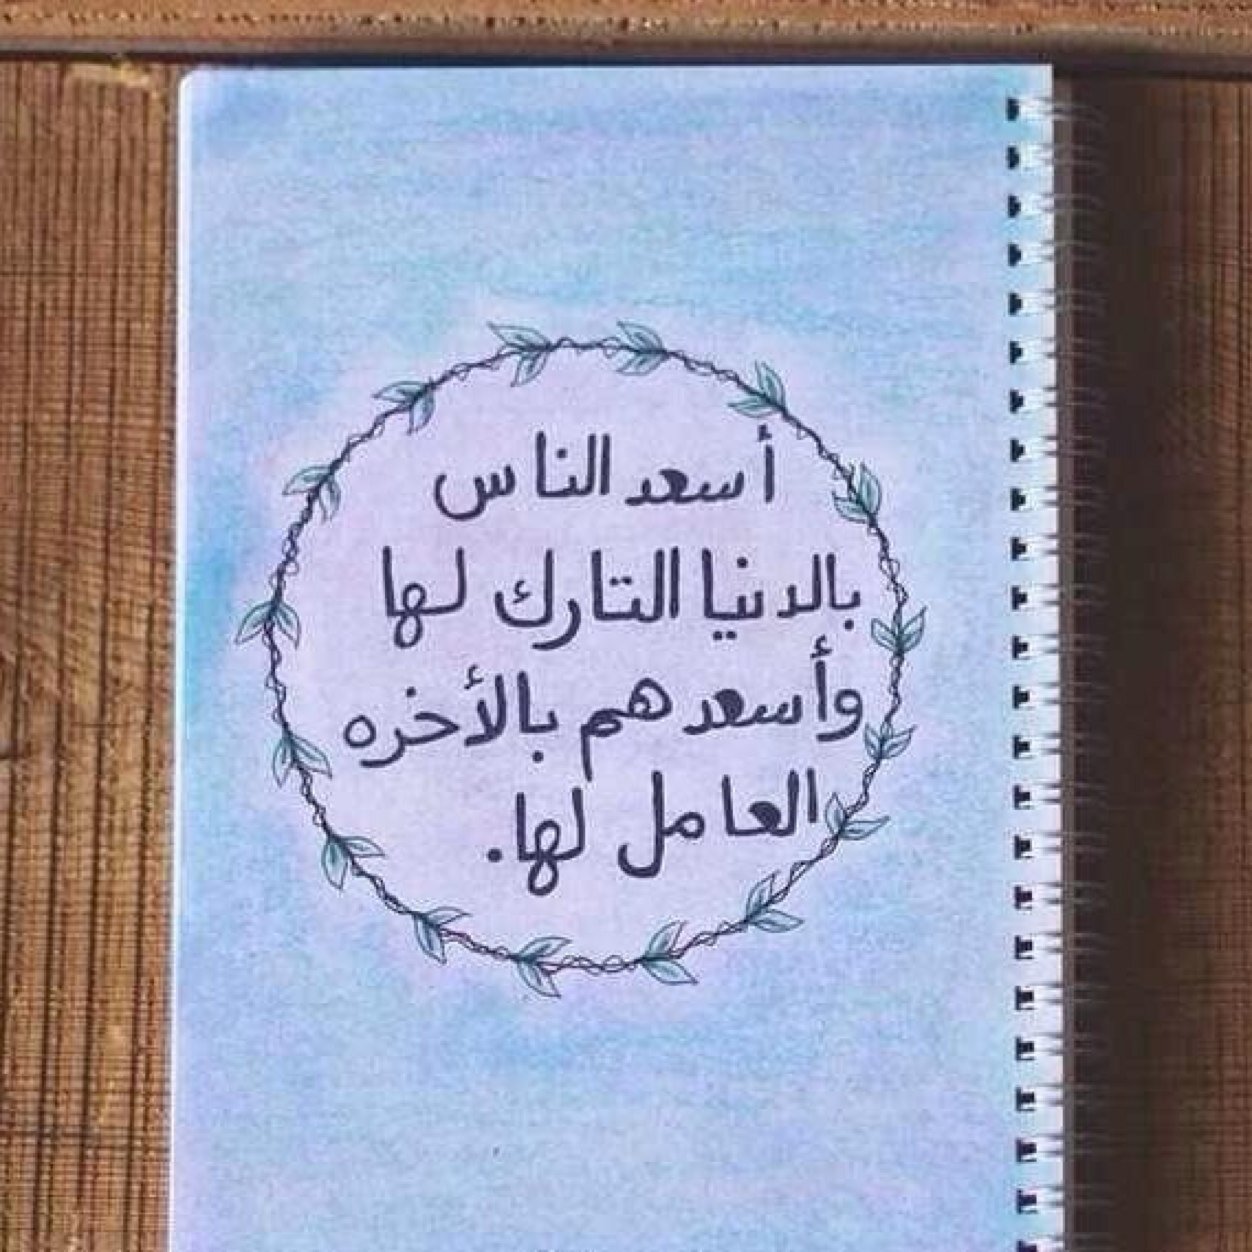 أسعد الناس
بالدنيا التارك لها
وأسعدهم بالأخره
العامل لها.